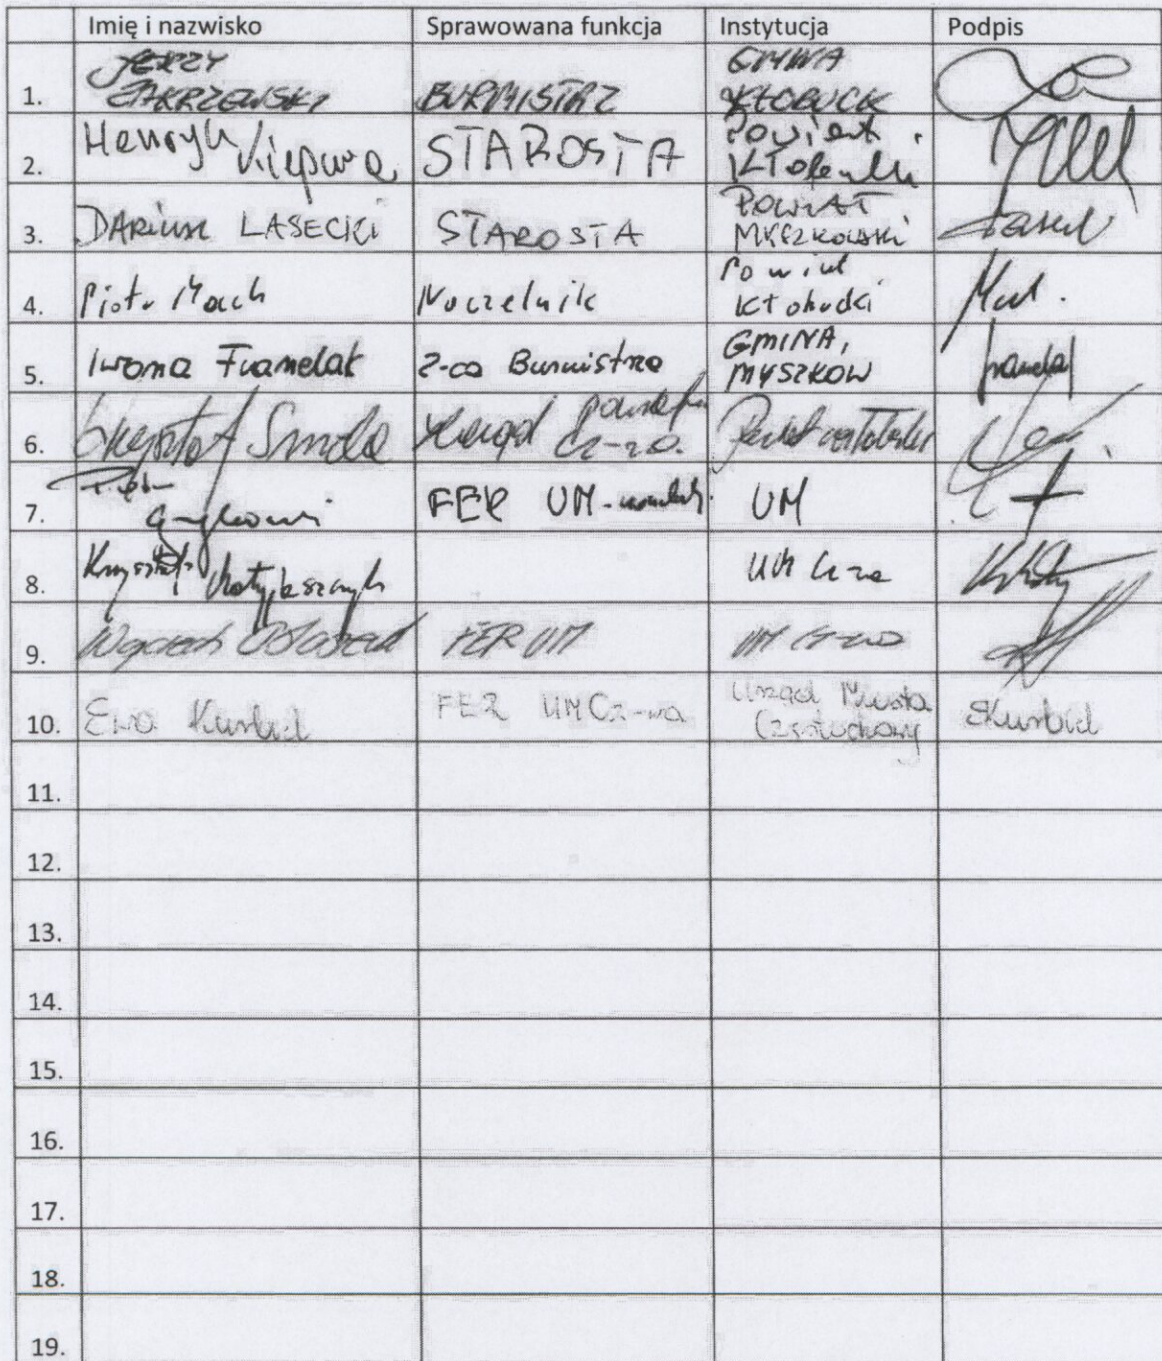 Imię i nazwisko Sprawowana funkcja Instytucja Podpis
1. JERZY ZAKRZEWSKI BURMISTRZ GMINA KŁOBUCK
2. Henryk Kiepura STAROSTA Powiat Kłobucki
3. DARIUSZ LASECKI STAROSTA POWIAT MYSZKOWSKI
4. Piotr Mach Naczelnik Powiat Kłobucki
5. Iwona Franelak Z-ca Burmistrza GMINA, MYSZKÓW
6. Krzysztof Smela Zarząd Powiatu Cz-wa.
7. Piotr FER UM UM
8. Krzysztof UM Cz-wa
9. Wojciech FER UM UM Cz-wa
10. Ewa Kurbiel FER UM Cz-wa Urząd Miasta Częstochowy EKurbiel
11.
12.
13.
14.
15.
16.
17.
18.
19.